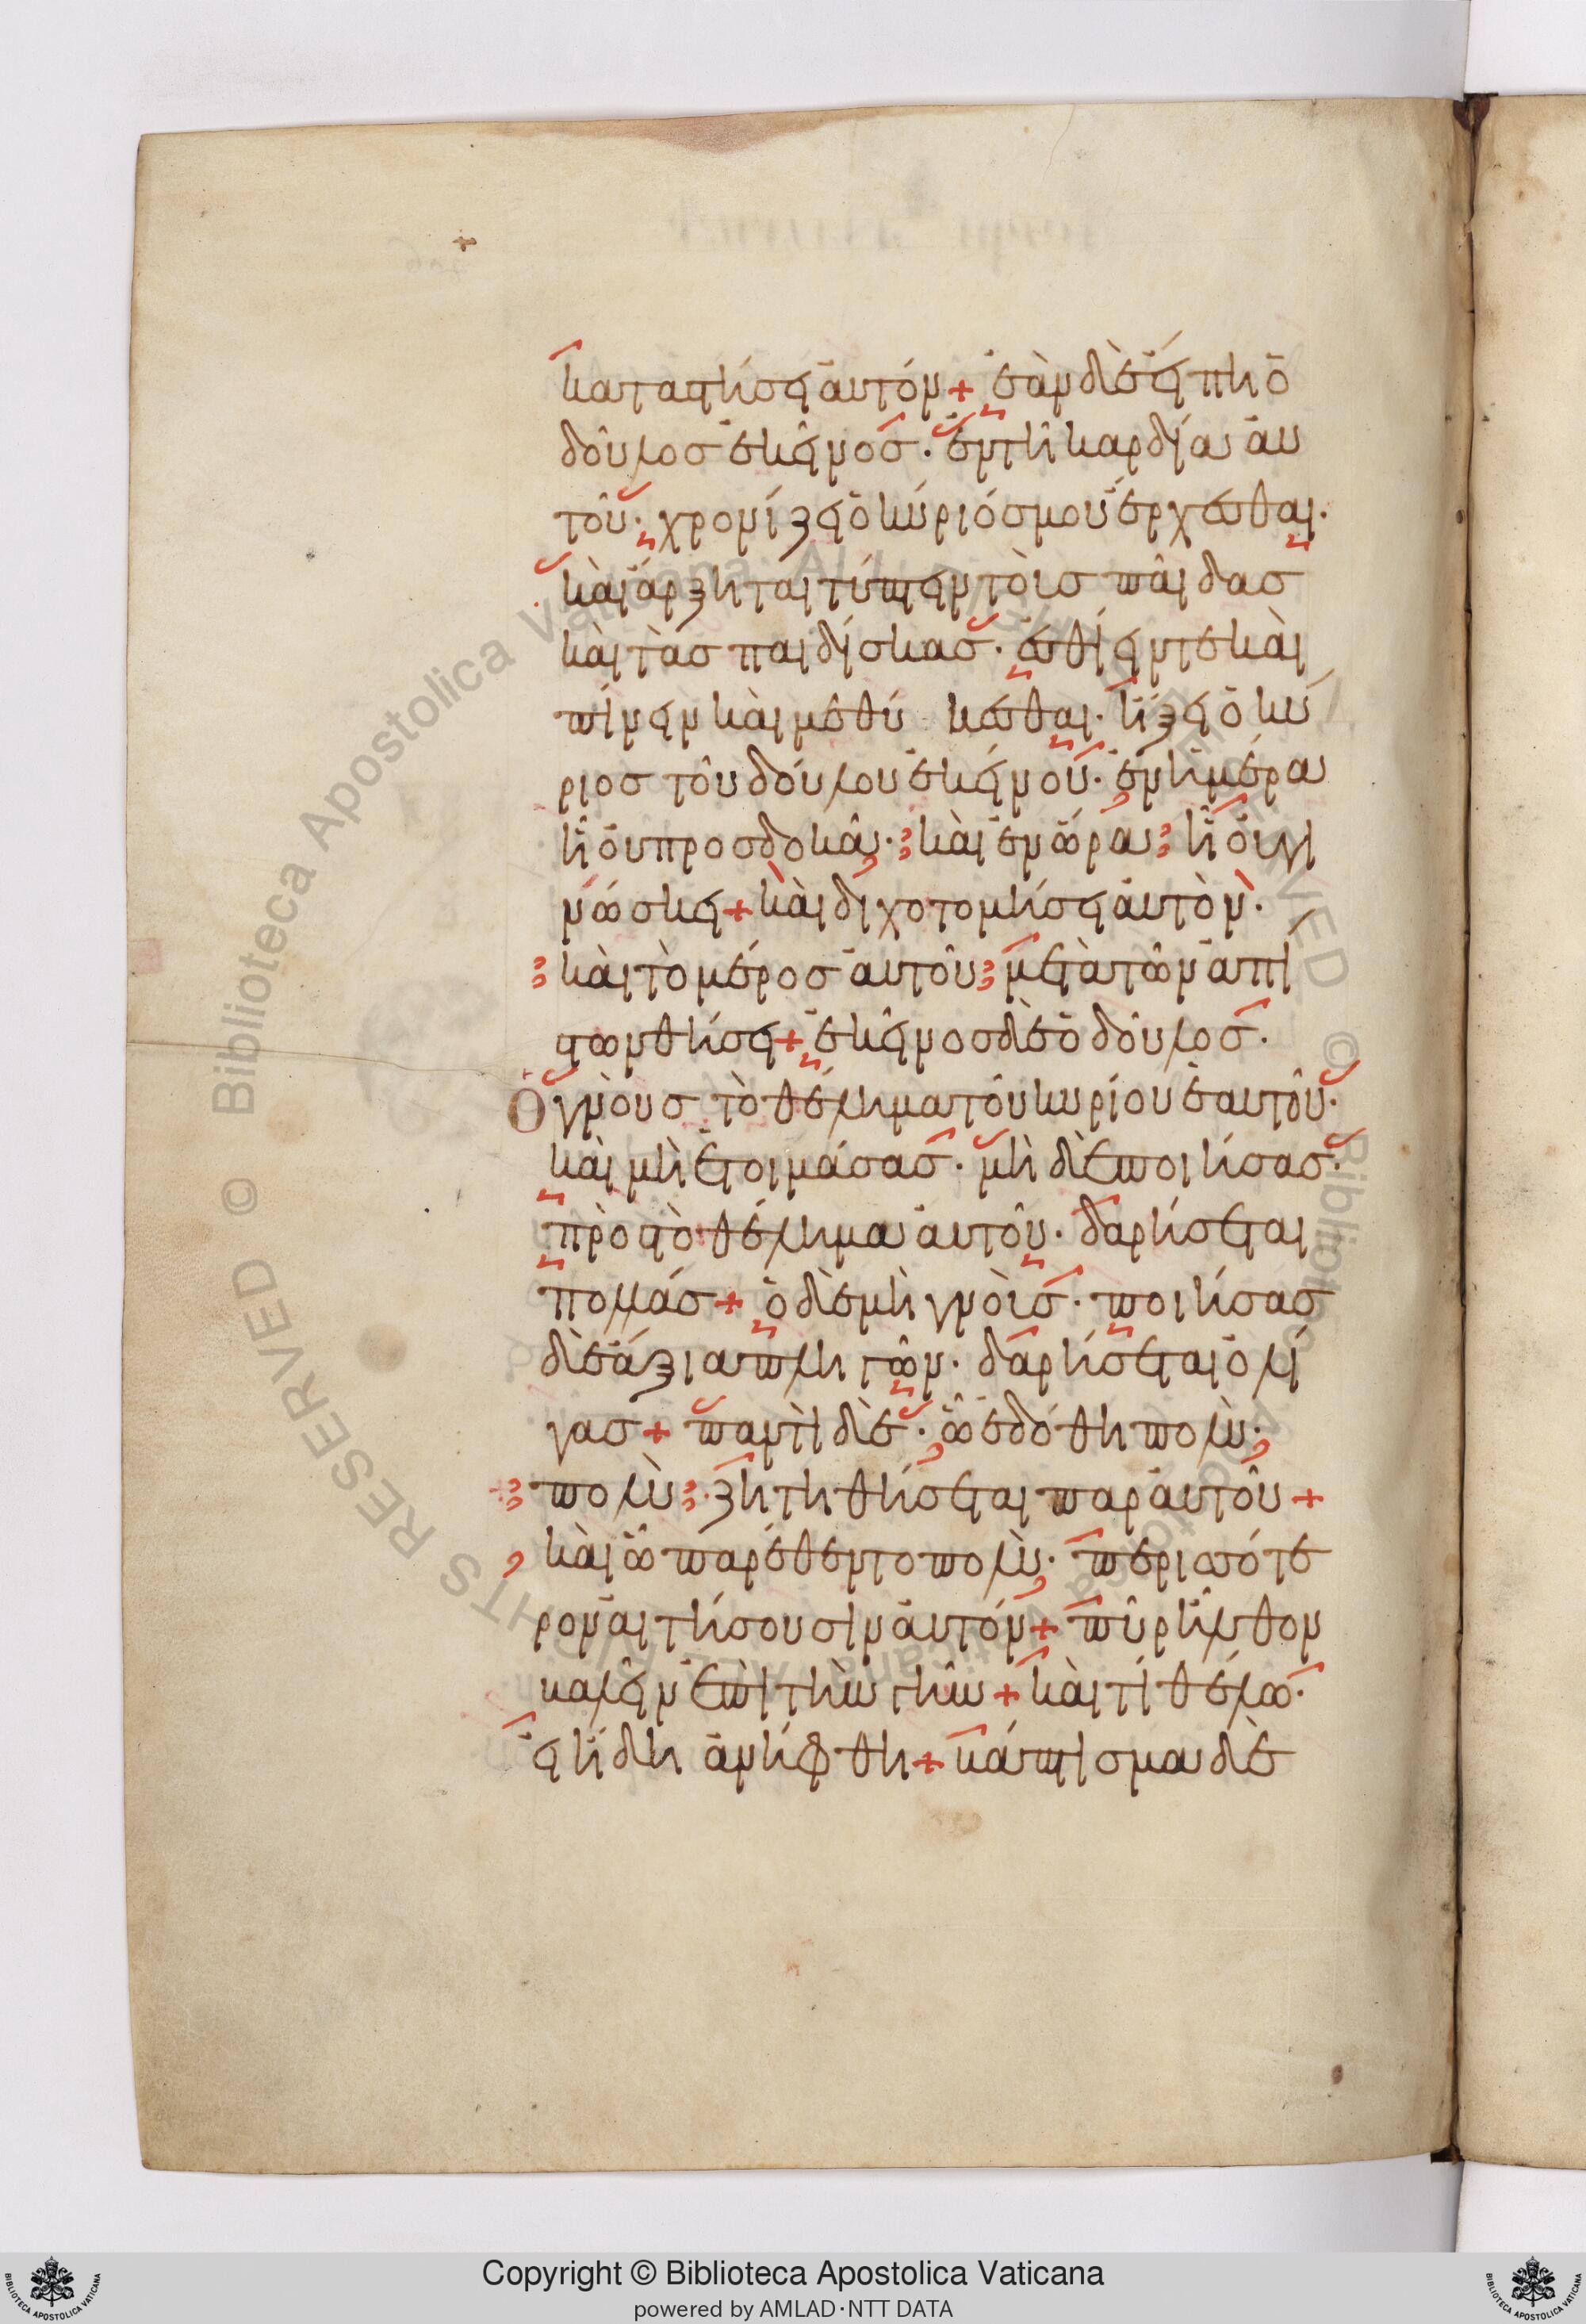 καταστήσει ἀυτόν + ἐὰν δὲ ἔιπη ὁ
δοῦλος ἐκεῖνος · ἐν τῆ καρδία ἀυ
τοῦ · χρονίζει ὁ κύριός μου ἔρχεσθαι ·
καὶ ἄρξηται τύπτειν τοὺς παῖδας
καὶ τὰς παιδίσκας · ἐσθίειν τε καὶ
πίνειν καὶ μεθύσκεσθαι · ἥξει ὁ κύ
ριος τοῦ δούλου ἐκείνου · ἐν ἡμέρα
ἧ ὀυ προσδοκᾶ · καὶ ἐν ὥρα ἧ ὀυ γι
νώσκει + καὶ διχοτομήσει ἀυτὸν ·
καὶ τὸ μέρος ἀυτοῦ μετὰ τῶν ἀπί
στων θήσει + ἐκεῖνος δὲ ὁ δοῦλος ·
Ὁ γνοὺς τὸ θέλημα τοῦ κυρίου ἑαυτοῦ ·
καὶ μὴ ἑτοιμάσας · μὴ δὲ ποιήσας ·
πρὸς τὸ θέλημα ἀυτοῦ · δαρήσεται
πολλάς + ὁ δὲ μὴ γνοὺς · ποιήσας
δὲ ἄξια πληγῶν · δαρήσεται ὀλί
γας + παντὶ δὲ · ὧ ἐδόθη πολὺ ·
πολὺ ζητηθήσεται παρ ἀυτοῦ +
καὶ ὧ παρέθεντο πολὺ · περισσότε
ρον ἀιτήσουσιν ἀυτόν + πῦρ ἦλθον
βαλεῖν ἐπὶ τὴν γῆν + καὶ τί θέλω ·
ἐι ἤδη ἀνήφθη + βάπτισμα δὲ
Copyright © Biblioteca Apostolica Vaticana
powered by AMLAD·NTT DATA